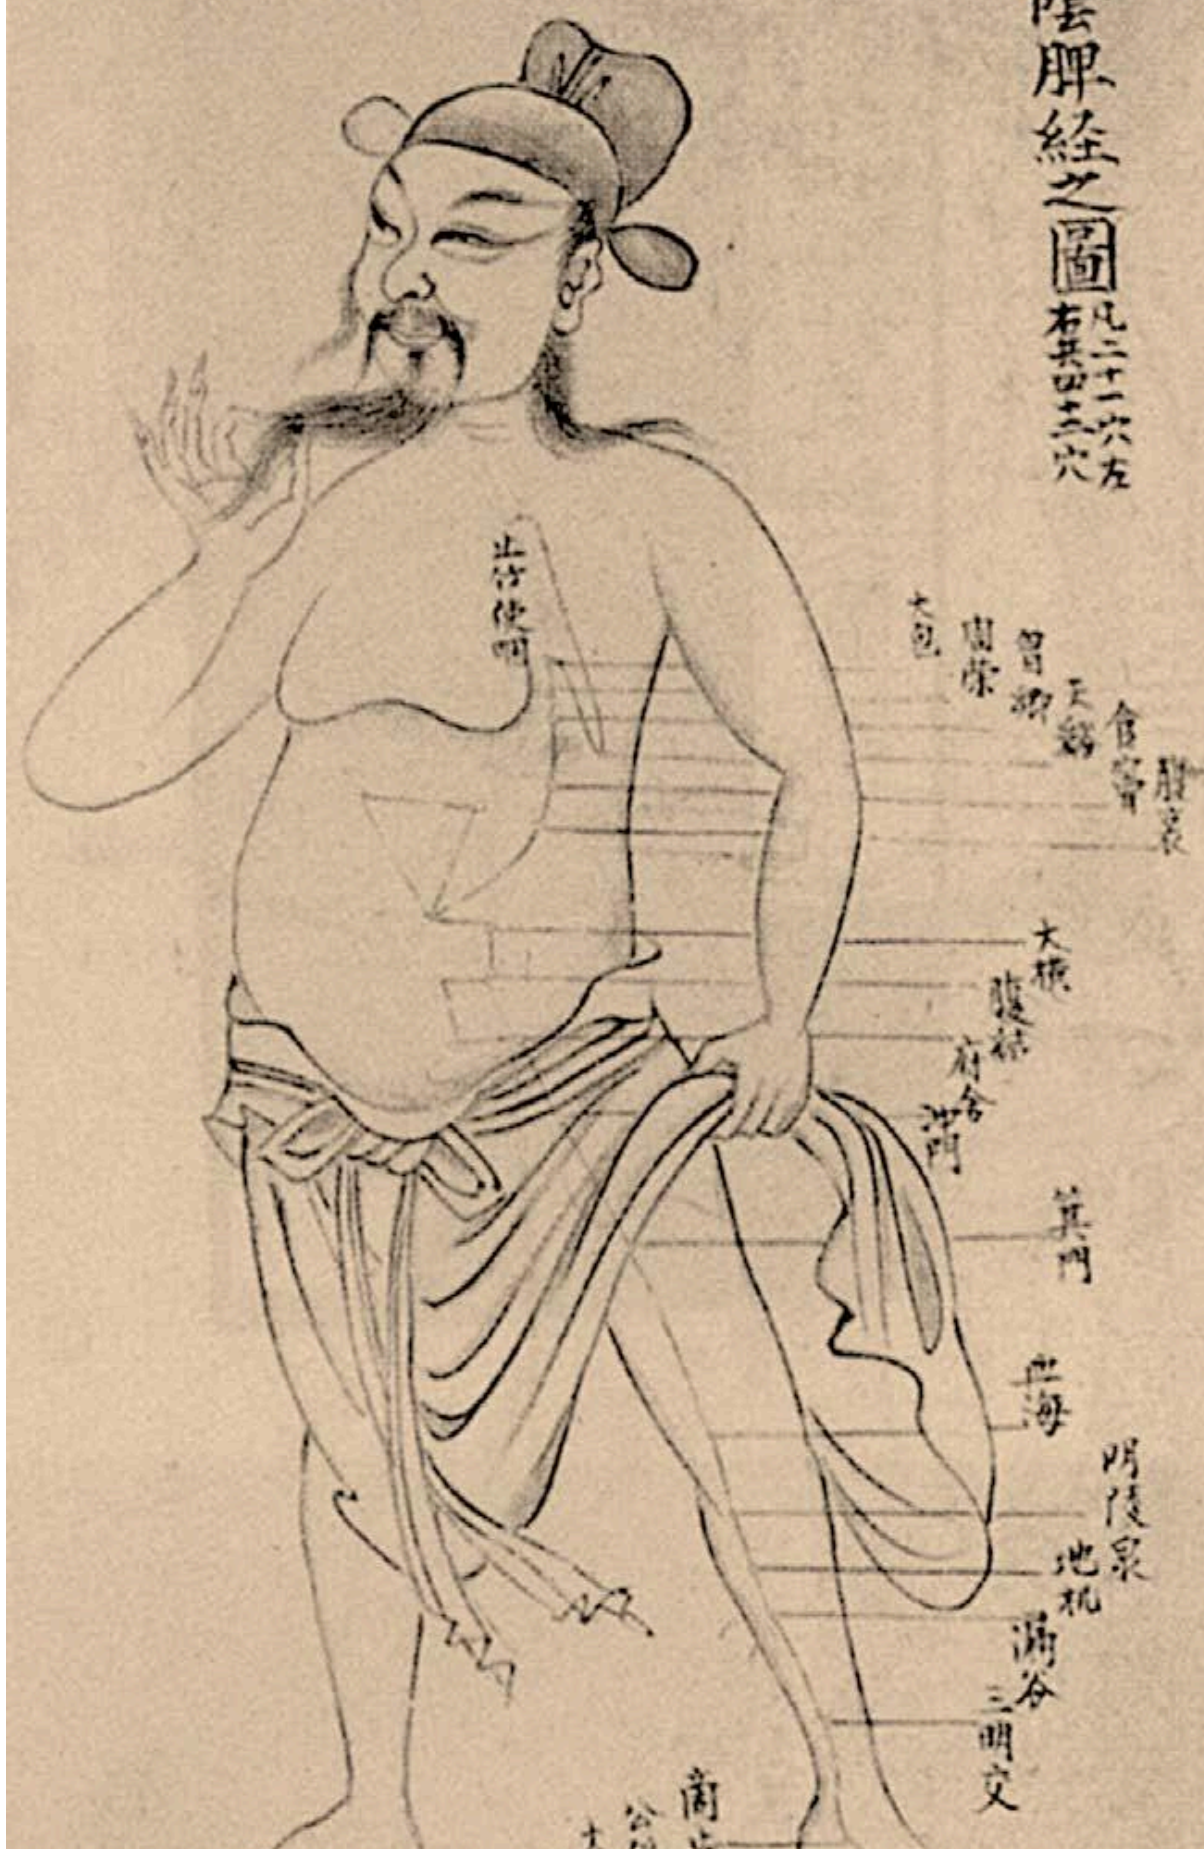 陰脾経之圖
凡二十一穴左
右共四十二穴
大包
周榮
胷鄉
天谿
食竇
腹哀
大横
腹結
府舍
冲門
箕門
血海
阴陵泉
地机
漏谷
三阴交
商丘
公